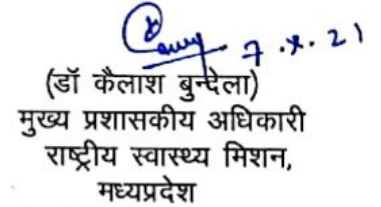 7.x.21
(डॉ कैलाश बुन्देला)
मुख्य प्रशासकीय अधिकारी
राष्ट्रीय स्वास्थ्य मिशन,
मध्यप्रदेश